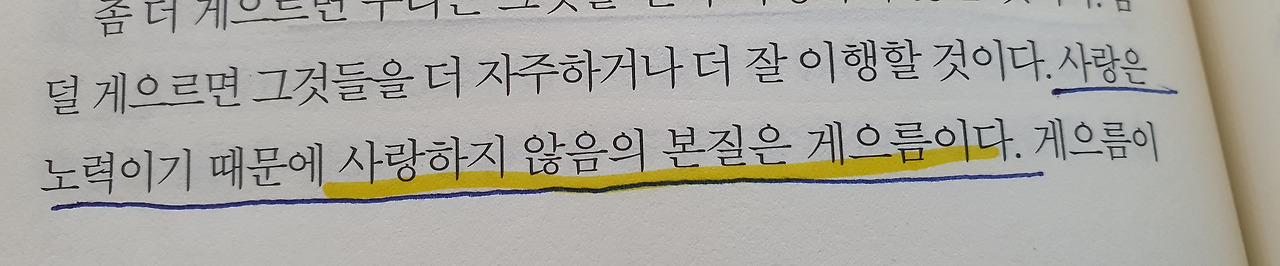 좀 더 게으르면 우리는 그것을
덜 게으르면 그것들을 더 자주하거나 더 잘 이행할 것이다. 사랑은
노력이기 때문에 사랑하지 않음의 본질은 게으름이다. 게으름이